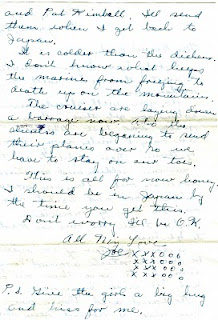 and Pat Kimball, I'll send
them when I get back to
Japan.
It is colder than the dickens.
I don't know what keeps
the marines from freezing to
death up on the mountain.
The cruiser are laying down
a barrage now. the
are begining to send
their planes over so we
have to stay on our toes.
This is all for now honey.
I should be in Japan by
the time you get this.
Don't worry I'll be O.K.
All My Love.
Joe XXXOOO
XXXOOO
XXXOOO
XXXOOO
P.S Give the girls a big hug
and kiss for me.